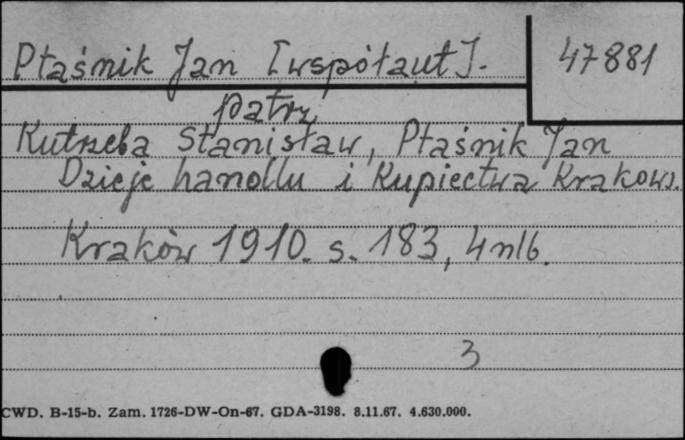 Ptaśnik Jan [współaut]. 47881
patrz
Kutrzeba Stanisław, Ptaśnik Jan
Dzieje handlu i Kupiectwa Krakows.
Kraków 1910. s. 183, 4 nlb.
3
CWD. B-15-b. Zam. 1726-DW-On-67. GDA-3198. 8.11.67. 4.630.000.